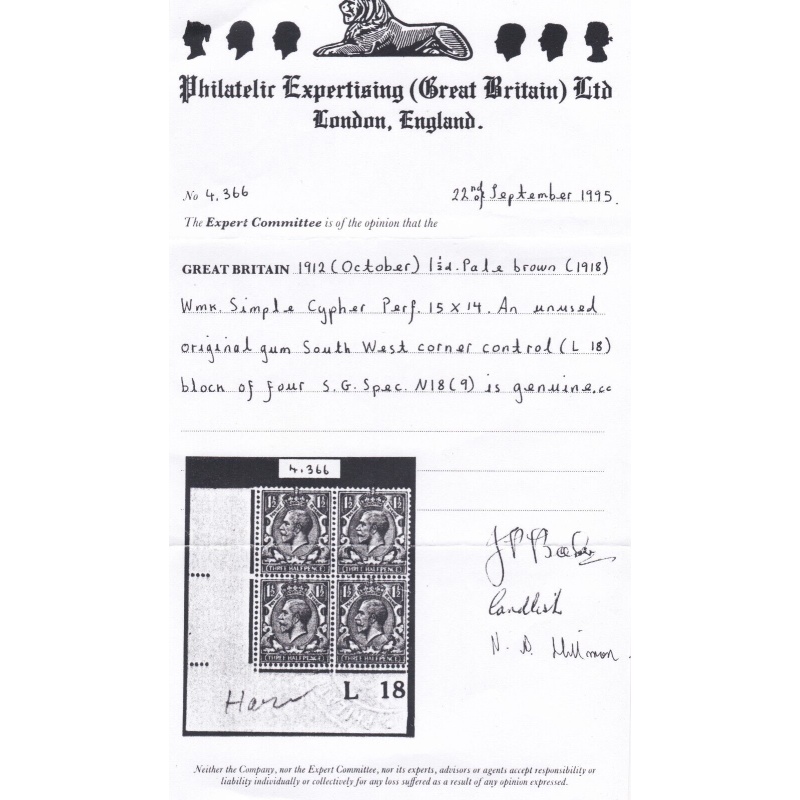 Philatelic Expertising (Great Britain) Ltd
London, England.
No 4,366 22nd of September 1995.
The Expert Committee is of the opinion that the
GREAT BRITAIN 1912 (October) 1½d. Pale brown (1918)
Wmk. Simple Cypher Perf. 15 x 14. An unused
original gum South West corner control (L 18)
block of four S.G. Spec. N18(9) is genuine.
4,366
1½ 1½ 1½ 1½
THREE HALFPENCE THREE HALFPENCE
1½ 1½ 1½ 1½
THREE HALFPENCE THREE HALFPENCE
L 18
Neither the Company, nor the Expert Committee, nor its experts, advisors or agents accept responsibility or
liability individually or collectively for any loss suffered as a result of any opinion expressed.